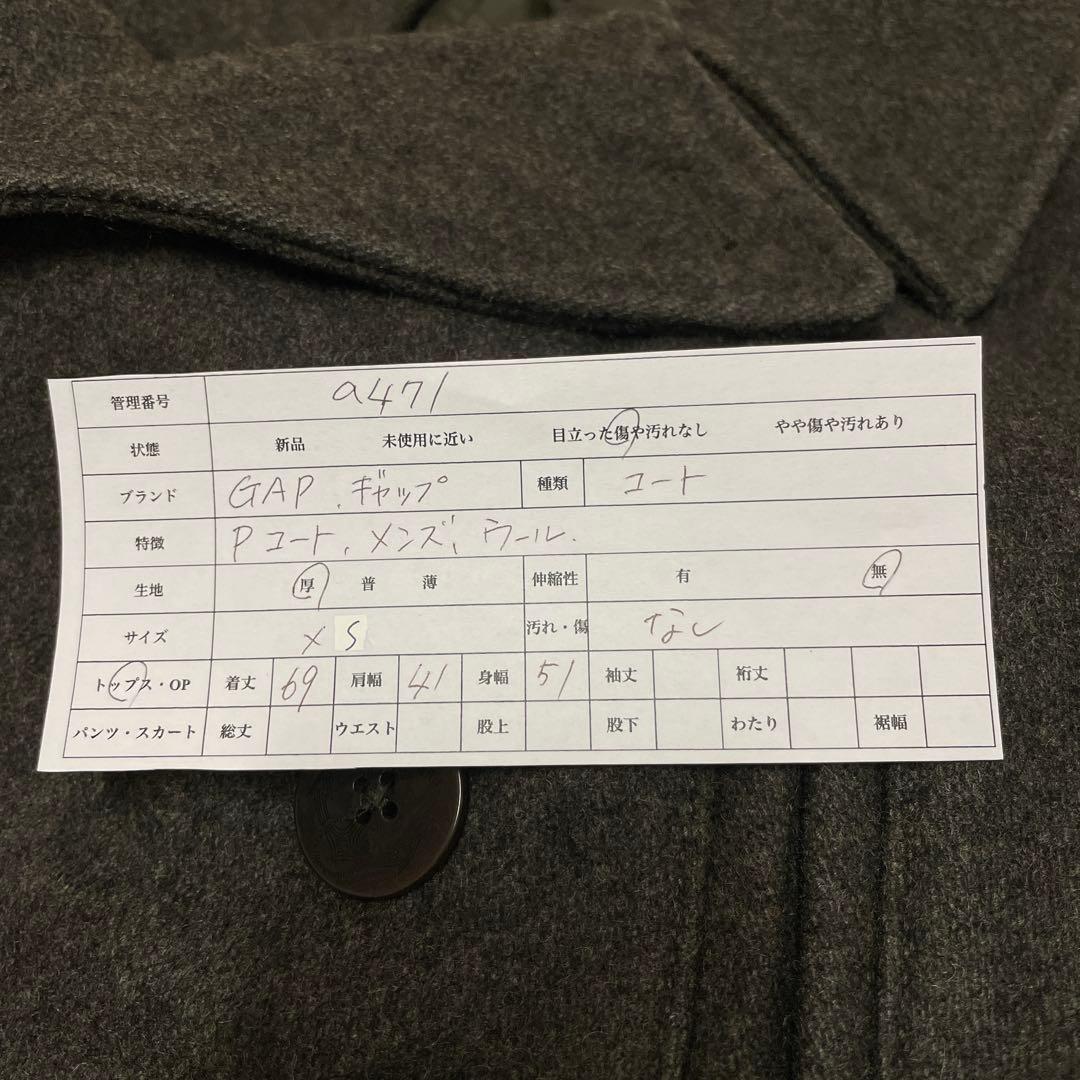 管理番号 a471
状態 新品 未使用に近い 目立った傷や汚れなし やや傷や汚れあり
ブランド GAP、ギャップ 種類 コート
特徴 Pコート、メンズ、ウール.
生地 厚 普 薄 伸縮性 有 無
サイズ XS 汚れ・傷 なし
トップス・OP 着丈 69 肩幅 41 身幅 51 袖丈 裄丈
パンツ・スカート 総丈 ウエスト 股上 股下 わたり 裾幅